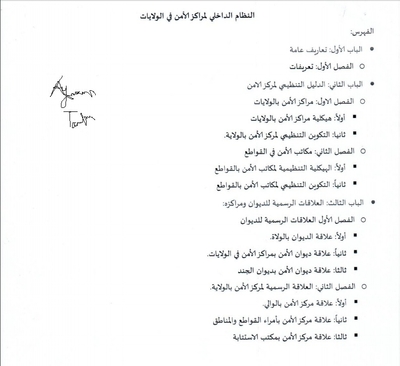 النظام الداخلي لمراكز الأمن في الولايات
الفهرس:
الباب الأول: تعاريف عامة
الفصل الأول: تعريفات
الباب الثاني: الدليل التنظيمي لمركز الأمن
الفصل الاول: مراكز الأمن بالولايات
أولاً: هيكلية مراكز الأمن بالولايات
ثانيا: التكوين التنظيمي لمركز الأمن بالولاية.
الفصل الثاني: مكاتب الأمن في القواطع
أولاً: الهيكلية التنظيمية لمكاتب الأمن بالقواطع
ثانياً: التكوين التنظيمي لمكاتب الأمن بالقواطع
الباب الثالث: العلاقات الرسمية للديوان ومراكزه:
الفصل الأول العلاقات الرسمية للديوان
أولاً: علاقة الديوان بالولاة.
ثانياً: علاقة ديوان الأمن بمراكز الأمن في الولايات.
ثالثا: علاقة ديوان الأمن بديوان الجند
الفصل الثاني: العلاقة الرسمية لمركز الأمن بالولاية.
أولاً: علاقة مركز الأمن بالوالي.
ثانياً: علاقة مركز الأمن بأمراء القواطع والمناطق
ثالثا: علاقة مركز الأمن بمكتب الاستتابة